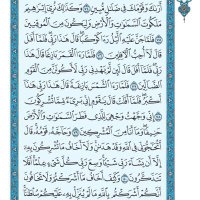 أَرَىٰكَ وَقَوْمَكَ فِي ضَلَٰلٍ مُّبِينٍ ۝ وَكَذَٰلِكَ نُرِيٓ إِبْرَٰهِيمَ
مَلَكُوتَ ٱلسَّمَٰوَٰتِ وَٱلْأَرْضِ وَلِيَكُونَ مِنَ ٱلْمُوقِنِينَ
۝ فَلَمَّا جَنَّ عَلَيْهِ ٱلَّيْلُ رَءَا كَوْكَبًا قَالَ هَٰذَا رَبِّي فَلَمَّآ أَفَلَ
قَالَ لَآ أُحِبُّ ٱلْأٓفِلِينَ ۝ فَلَمَّا رَءَا ٱلْقَمَرَ بَازِغًا قَالَ هَٰذَا
رَبِّي فَلَمَّآ أَفَلَ قَالَ لَئِن لَّمْ يَهْدِنِي رَبِّي لَأَكُونَنَّ مِنَ ٱلْقَوْمِ
ٱلضَّآلِّينَ ۝ فَلَمَّا رَءَا ٱلشَّمْسَ بَازِغَةً قَالَ هَٰذَا رَبِّي هَٰذَآ
أَكْبَرُ فَلَمَّآ أَفَلَتْ قَالَ يَٰقَوْمِ إِنِّي بَرِيٓءٌ مِّمَّا تُشْرِكُونَ
۝ إِنِّي وَجَّهْتُ وَجْهِيَ لِلَّذِي فَطَرَ ٱلسَّمَٰوَٰتِ وَٱلْأَرْضَ
حَنِيفًا وَمَآ أَنَا۠ مِنَ ٱلْمُشْرِكِينَ ۝ وَحَآجَّهُۥ قَوْمُهُۥ قَالَ
أَتُحَٰٓجُّوٓنِّي فِي ٱللَّهِ وَقَدْ هَدَىٰنِ وَلَآ أَخَافُ مَا تُشْرِكُونَ بِهِۦٓ
إِلَّآ أَن يَشَآءَ رَبِّي شَيْـًٔا وَسِعَ رَبِّي كُلَّ شَيْءٍ عِلْمًا أَفَلَا
تَتَذَكَّرُونَ ۝ وَكَيْفَ أَخَافُ مَآ أَشْرَكْتُمْ وَلَا تَخَافُونَ
أَنَّكُمْ أَشْرَكْتُم بِٱللَّهِ مَا لَمْ يُنَزِّلْ بِهِۦ عَلَيْكُمْ سُلْطَٰنًا